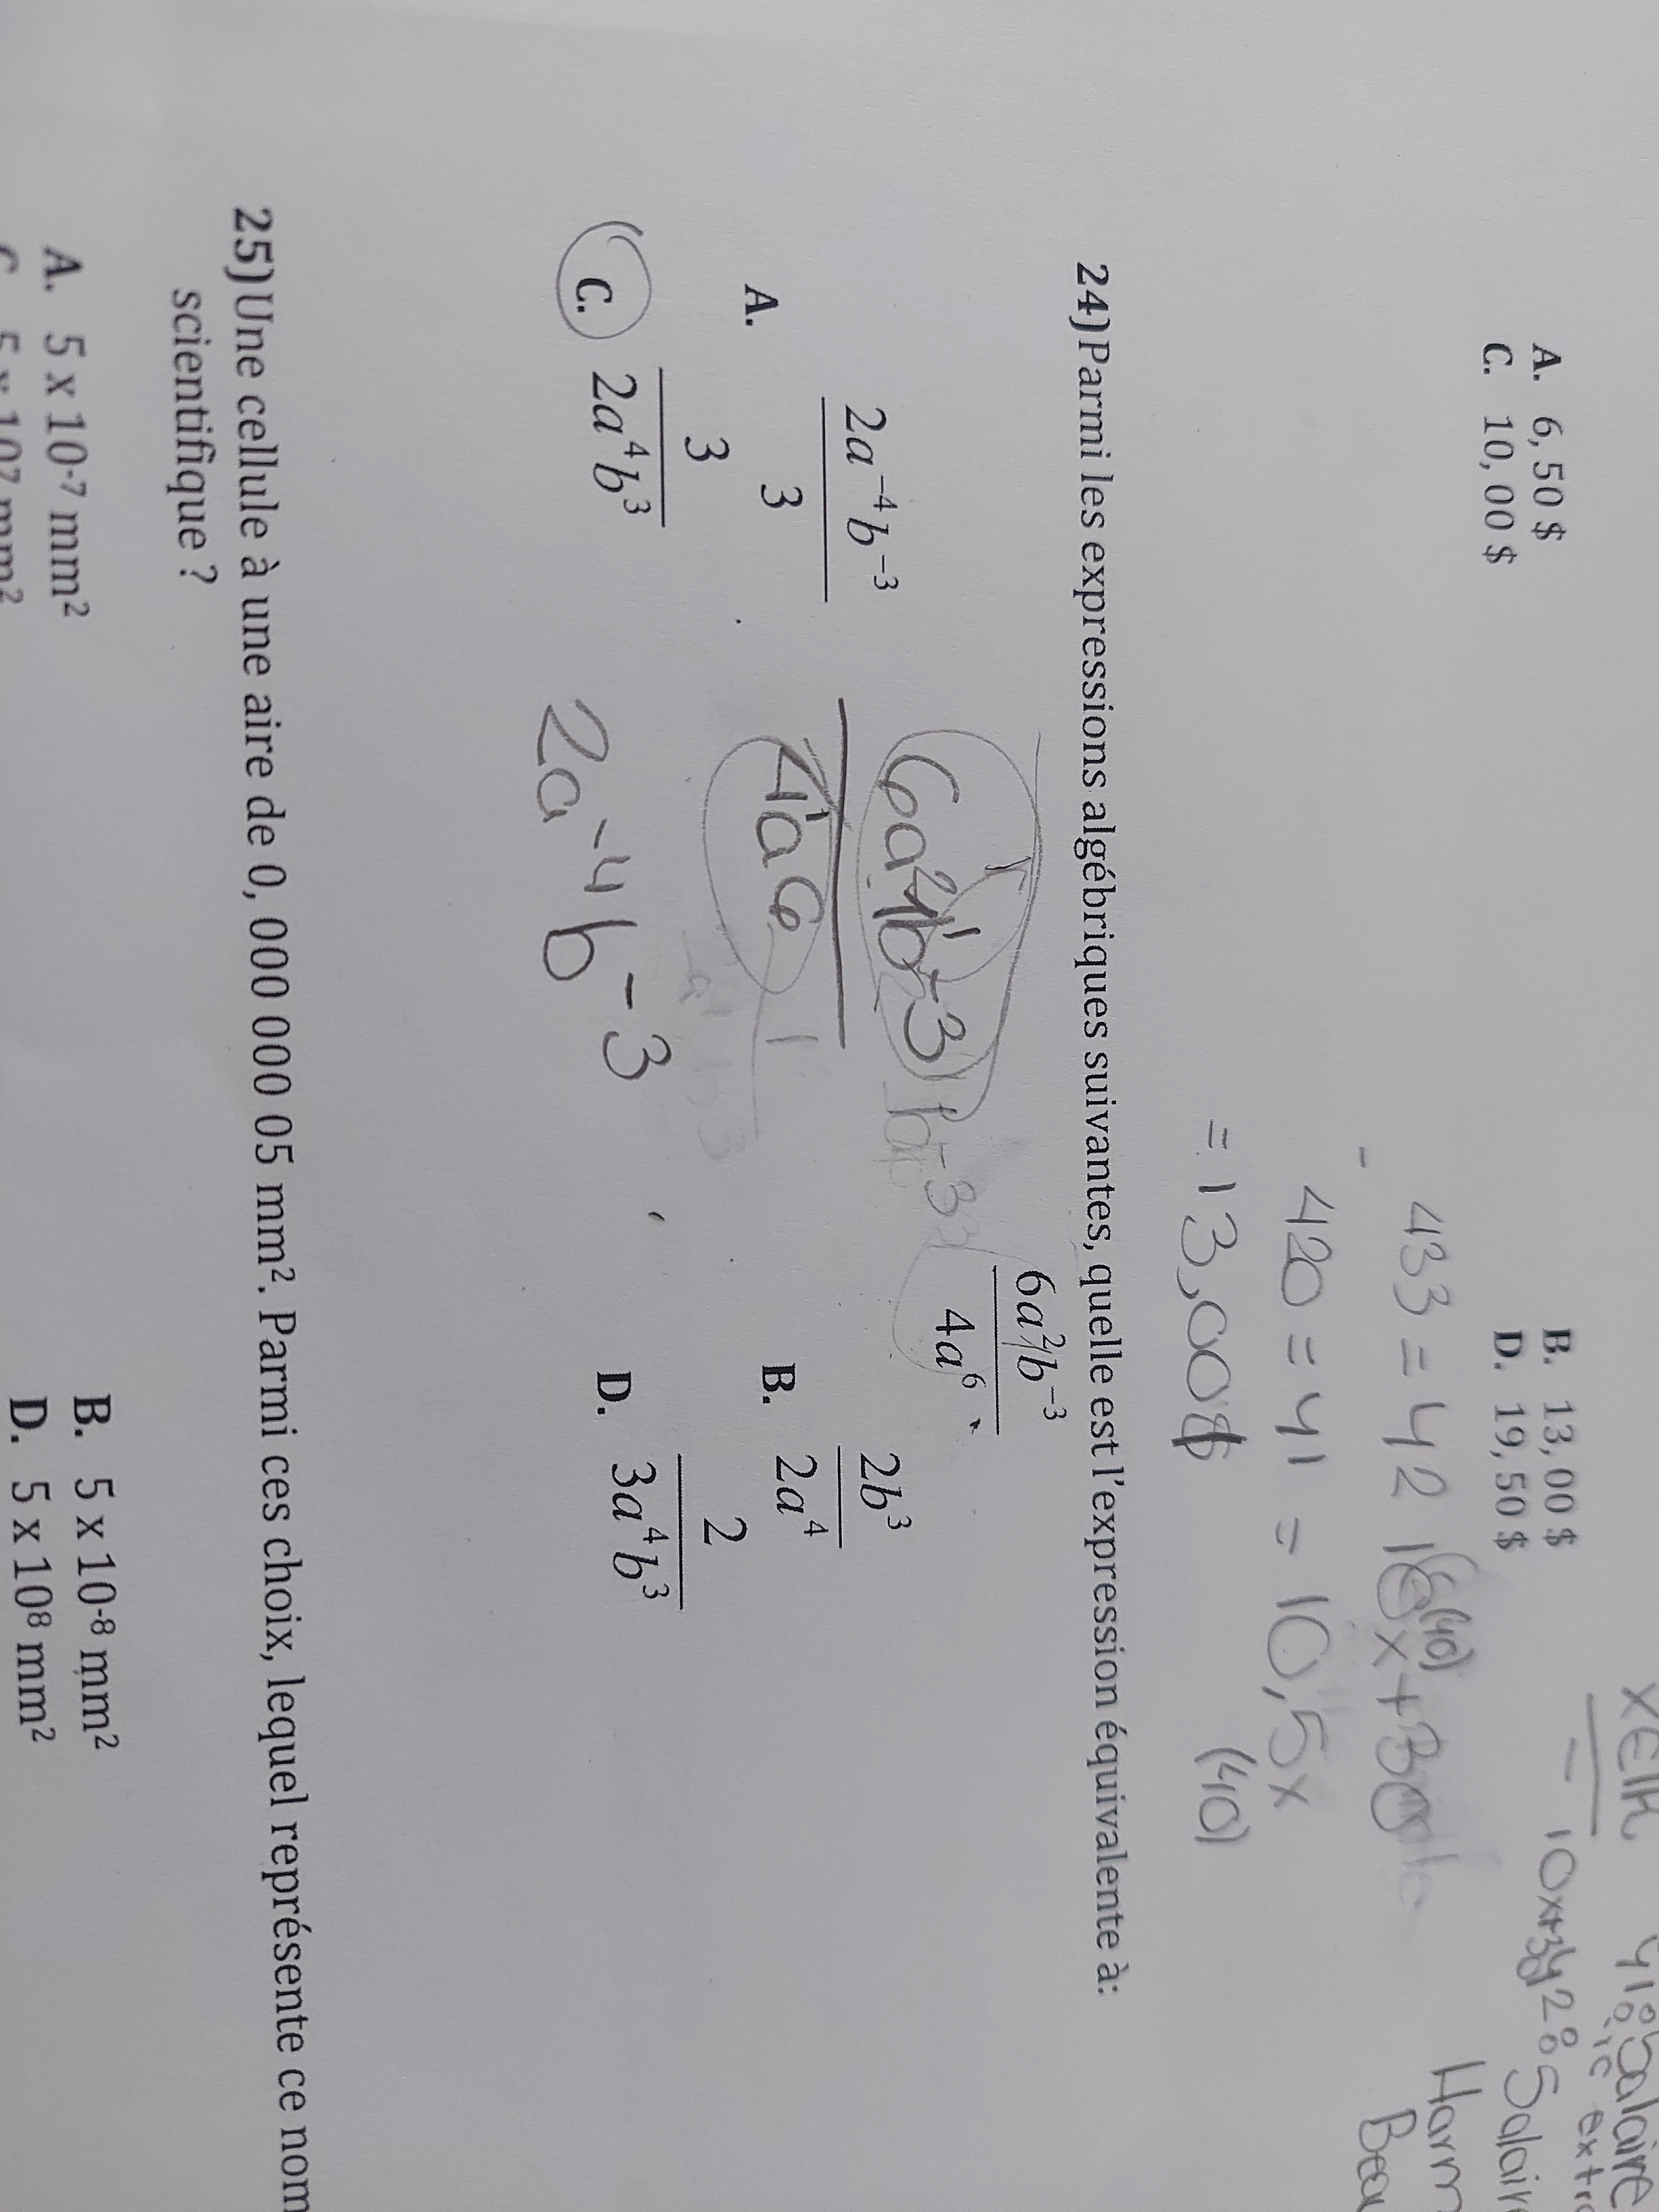 A. 6, 50 $ B. 13, 00 $
C. 10, 00 $ D. 19, 50 $
- 10x+3
y2 : Salair
433 = 42
420 = 41 = 10,5x
= 13,00$ (40)
24) Parmi les expressions algébriques suivantes, quelle est l'expression équivalente à:
6a²b⁻³
4a⁶
A. 2a⁻⁴b⁻³
3
B. 2b³
2a⁴
6a²b-3
4a6
C. 3
2a⁴b³
D. 2
3a⁴b³
2a-4b-3
25) Une cellule à une aire de 0, 000 000 05 mm². Parmi ces choix, lequel représente ce nom
scientifique ?
A. 5 x 10⁻⁷ mm² B. 5 x 10⁻⁸ mm²
C 5 x 10⁷ mm² D. 5 x 10⁸ mm²